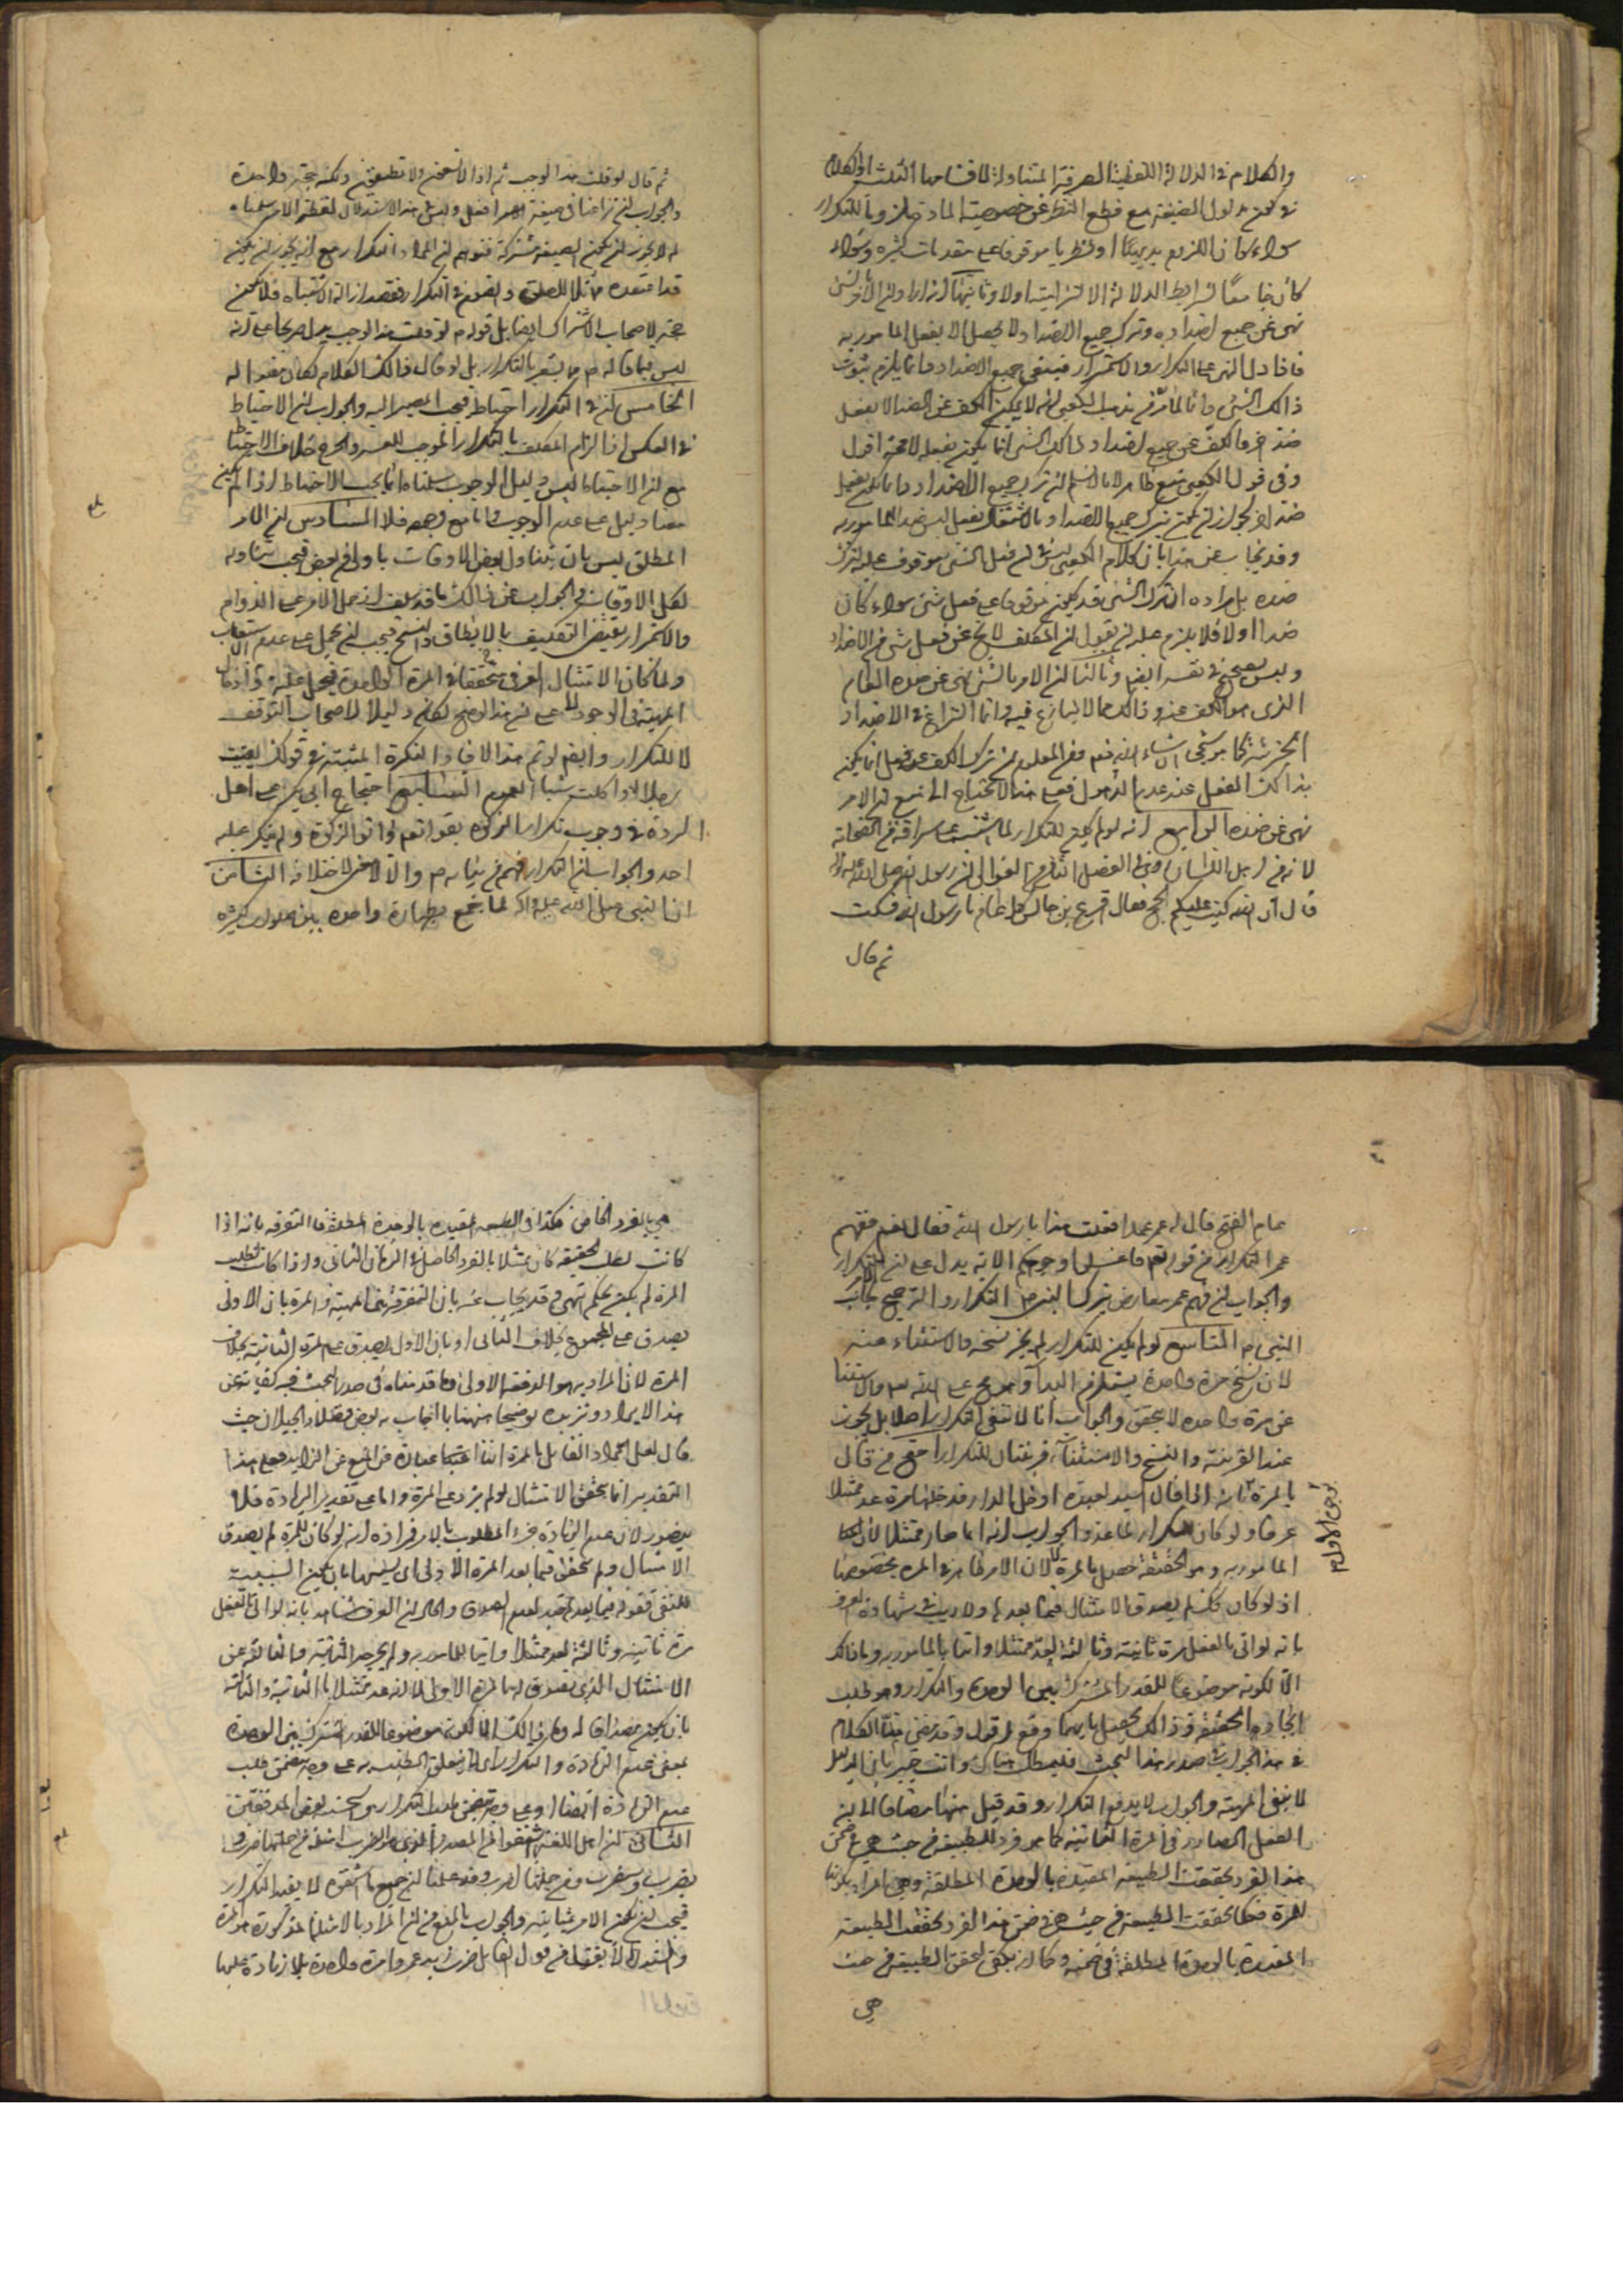 والكلام في الدلالة اللفظية العرفية المتناولة لاقسامها الثلث او الكلام
في كون مدلول الصيغة مع قطع النظر عن خصوصية المادة هل هو التكرار
سواء كان اللزوم بديهيا او نظريا موقوفا على مقدمات كثيرة وسواء
كان جامعا لشرايط الدلالة الالتزامية اولا وثانيها انه اراد ان الامر بالشئ
نهى عن جميع اضداده وترك جميع الاضداد لا يحصل الا بفعل المامور به
فافاد النهى على التكرار والاستمرار فينفى جميع الاضداد دائما يلزم ثبوت
ذالك الشئ دائما لما مر في مذهب الكعبى انه لا يمكن الكف عن الضد الا بفعل
ضد اخر فالكف عن جميع اضداد ذالك الشئ انما يكون بفعله لا محة اقول
وفى قول الكعبى منع ظاهر لانا لا نسلم ان ترك جميع الاضداد دائما يكون بفعل
ضد اخر لجواز ان يكون بترك جميع الاضداد والاشتغال بفعل ليس ضد المامور به
وقد يجاب عن هذا بان كلام الكعبى ليس في ان فعل الشئ موقوف عليه لترك
ضده بل مراده ان ترك الشئ قد يكون موقوفا على فعل شئ سواء كان
ضدا اولا فلا يلزم عليه ان يقول ان المكلف لا يخ عن فعل شئ من الاضداد
وليس بصحيح في نفسه ايضا وثالثا ان الامر بالشئ نهى عن ضده العام
الذى هو الكف عنه وذالك مما لا ينازع فيه وانما النزاع في الاضداد
الجزئية كما سيجئ انشاء الله نعم من المعلوم ان ترك الكف عن فعل انما يكون
بذالك الفعل عند عدم الذهول فعلى هذا لا تحتاج الى منع ان الامر
نهى عن ضده الرابع انه لو لم يكن للتكرار لما اشتبه على سراقة من الصحابة
لانه من اهل اللسان وفى الفصل الثانى في الغوالى ان رسول الله صلى الله عليه واله
قال ان الله كتب عليكم الحج فقال اقرع بن حابس كل عام يا رسول الله فسكت
ثم قال
ثم قال لو قلت هذا لوجب ثم اذا لا تسمعون ولا تطيعون ولكنه حجة واحدة
والجواب ان نزاعنا في صيغة الامر افعل وليس هذا الاستدلال لفظة الامر سلمناه
لم لا يجوز ان يكون الصيغة مشتركة فتوهم ان المراد التكرار مع انه يجوز ان يكون
قد اعتقده مماثلا للصلوة والصوم في التكرار فقصد ازالة الاشتباه فلا يكون
حجة لاصحاب الاشتراك ايضا بل قوله م لو قلت هذا لوجب يدل صريحا على انه
ليس فيما قاله م ما يشعر بالتكرار بل لو قال ذالك الكلام لكان مفيدا له
الخامس ان في التكرار احتياط فيجب المصير اليه والجواب ان الاحتياط
في العكس اذ الزام المكلف بالتكرار الموجب للعسر والحرج خلاف الاحتياط
مع ان الاحتياط ليس دليل الوجوب سلمناه انما يجب الاحتياط اذا لم يكن
معنا دليل على عدم الوجوب واما مع وجوده فلا السادس ان الامر
المطلق ليس بان يتناول بعض الاوقات باولى من بعض فيجب تناوله
لكل الاوقات والجواب عن ذالك ما قد سلف ان حمل الامر على الدوام
والاستمرار يقتضى التكليف بما لا يطاق والنسخ فيجب ان يحمل على عدم استيعاب
ولما كان الامتثال العرفى متحققا في المرة الواحدة فيحمل عليه
المهية في الوجود على ان هذا لو صح لكان دليلا لاصحاب التوقف
لا للتكرار وايضا لو تم هذا لافاد النكرة المثبتة في قولك رايت
رجلا او اكلت شيئا العموم السابع احتجاج ابى بكر على اهل
الردة في وجوب تكرار الزكوة بقوله تعم واتوا الزكوة ولم ينكر عليه
احد والجواب ان التكرار فهم من بيانه م والا لاخر لا خلافه الثامن
ان النبى صلى الله عليه واله لما جمع بطهارة واحدة بين صلوات كثيرة
عام الفتح قال له عمر عمدا فعلت هذا يا رسول الله فقال نعم ففهم
عمر التكرار من قوله تعم فاغسلوا وجوهكم الاية يدل على ان الامر للتكرار
والجواب ان فهم عمر معارض بترك النبى ص التكرار والترجيح بجانب
النبى م التاسع لو لم يكن للتكرار لم يجز نسخه والاستثناء منه
لان نسخ مرة واحدة يستلزم البداء وهو مح على الله سم والاستثنا
عن مرة واحدة لا يتحقق والجواب انا لا ننفى التكرار اصلا بل يجوز
عند القرينة والنسخ والاستثناء قرينتان للتكرار احتج من قال
بالمرة بانه اذا قال السيد لعبده ادخل الدار فدخلها مرة عد ممتثلا
عرفا ولو كان للتكرار لما عد والجواب انه انما صار ممتثلا لان
المامور به وهو الحقيقة حصل بالمرة لا لان الامر ظاهر في المرة بخصوصها
اذ لو كان كك لم يصدق الامتثال فيما بعدها ولا ريب في شهادة العرف
بانه لو اتى بالفعل مرة ثانية وثالثة لعد ممتثلا واتيا بالمامور به وما ذالك
الا لكونه موضوعا للقدر المشترك بين الوحدة والتكرار وهو طلب
ايجاد الحقيقة وذالك يحصل بايهما وقع اقول وقد مضى منا الكلام
في هذا الجواب في صدر هذا المبحث فليطلب هناك وانت خبير بان الدليل
لا ينفى المهية والجواب لا يدفع التكرار وقد قيل هنا مضافا الى ان
الفعل الصادر في المرة الثانية كما هو فرد للطبيعة من حيث هى في ضمن
هذا الفرد تحققت الطبيعة المقيدة بالوحدة المطلقة وهى المراد بكونها
للمرة فكما تحققت الطبيعة من حيث هى في ضمن هذا الفرد تحققت الطبيعة
المقيدة بالوحدة المطلقة في ضمنه وكما لم يكن تحقق الطبيعة من حيث
هى
هى بالفرد الخاص فكذا في الطبيعة المقيدة بالوحدة المطلقة فالتفرقة بانه اذا
كانت لطلب الحقيقة كان ممتثلا بالفرد الحاصل في الزمان الثانى واذا كانت لطلب
المرة لم يكن كك انتهى وقد يجاب عنه بان التفرقة بين المهية والمرة بان الاولى
يصدق على المجموع بخلاف الثانى او بان الاول يصدق على المرة الثانية بخلاف
المرة لان المراد بها هو الدفعة الاولى وما قدمناه في صدر المبحث فيه كفاية عن
هذا الايراد ونزيده توضيحا هيهنا بما اجاب به بعض فضلاء جيلان حيث
قال لعل مراد القائل بالمرة
التقدير انما يتحقق الامتثال لو لم يزد على المرة واما على تقدير الزيادة فلا
يتصور لان عدم الزيادة جزء المطلوب بالامر فمراده انه لو كان للمرة لم يصدق
الامتثال ولم يتحقق فيما بعد المرة الاولى
للنفى فقوله فيما بعدها قيد لعدم الصدق والحال ان العرف شاهد بانه لو اتى بالفعل
مرة ثانية وثالثة لعد ممتثلا واتيا بالمامور به ولم يخرجه الثانية والثالثة عن
الامتثال الذى يصدق له بالمرة الاولى لا انه عد ممتثلا بالثانية والثالثة
بان يكون مصداقا له وما ذالك الا لكونه موضوعا للقدر المشترك بين الوحدة
بمعنى عدم الزيادة والتكرار اى لا يتعلق الطلب به على وجه يتضمن طلب
عدم الزيادة ايضا ولا على وجه يتضمن طلب التكرار
الثانى ان اهل اللغة اشتقوا من المصدر
يضرب وسيضرب ومن جملتها اضرب وقد علمنا ان جميع ما اشتقوه لا يفيد التكرار
فيجب ان يكون الامر بمثابته والجواب بالمنع من ان المراد بالامثلة المذكورة هو المرة
والسؤال لا يفقد من قول القائل ضرب زيد عمروا مرة واحدة بلا زيادة عليها